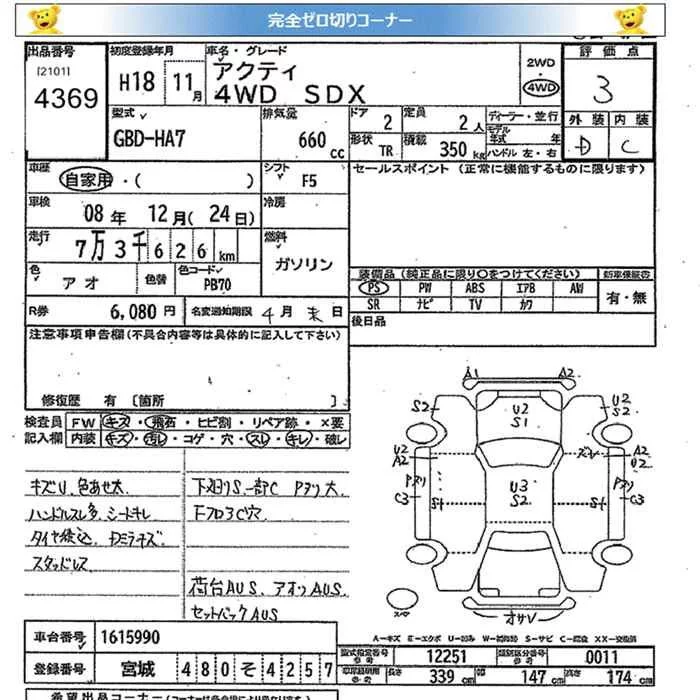 完全ゼロ切りコーナー
出品番号
[2101]
4369
初度登録年月
H18 11月
車名・グレード
アクティ
4WD SDX
2WD
・
4WD
評価点
3
外装 内装
D C
型式
GBD-HA7
排気量
660 cc
ドア
2
定員
2人
ディーラー・並行
モデル年式 年
ハンドル 左・右
形状
TR
積載
350 kg
車歴
自家用・( )
シフト
F5
セールスポイント (正常に機能するものに限ります)
車検
08年 12月(24日)
冷房
走行
7万3千626km
燃料
ガソリン
色
アオ
色替
色コード
PB70
装備品 (純正品に限り○をつけてください)
新車保証書
PS PW ABS エアB AW
SR ナビ TV カワ
有・無
R券
6,080 円
名変通知期限
4月末日
後日品
注意事項申告欄 (不具合内容等は具体的に記入して下さい)
修復歴 有 [箇所 ]
検査員記入欄
FW キズ・飛石・ヒビ割・リペア跡・×要
内装 キズ・汚レ・コゲ・穴・スレ・キレ・破レ
キズU、色あせ大
ハンドルスレ多、シートキレ
スタッドレス
下廻りS、一部C Pヌリ大
荷台AUS、アオリAUS
セットバックAUS
A1 A2
S2 U2 S1 U2 S2
U2 A2 A2 U2
Pヌリ U3 S2 Pヌリ
C3 St St C3
オサV
A−キズ E−エクボ U−凹み W−補修跡 S−サビ C−腐食 XX−交換済
車台番号
1615990
登録番号
宮城 480そ4257
型式指定番号 参考
12251
類別区分番号 参考
0011
車庫証明用 参考
長さ 339 cm
幅 147 cm
高さ 174 cm
希望出品コーナー